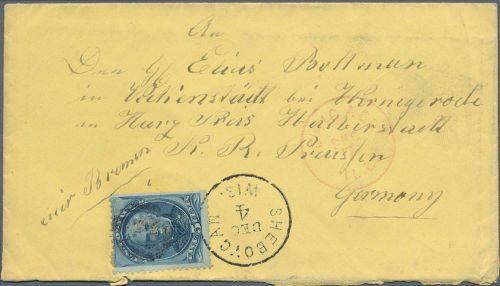 An
Den H Elias Bollman
in Veckenstädt bei Wernigerode
am Harz Kreis Halberstadt
K. R. Preussen
Germany
via Bremen
SHEBOYGAN
DEC
4
WIS.